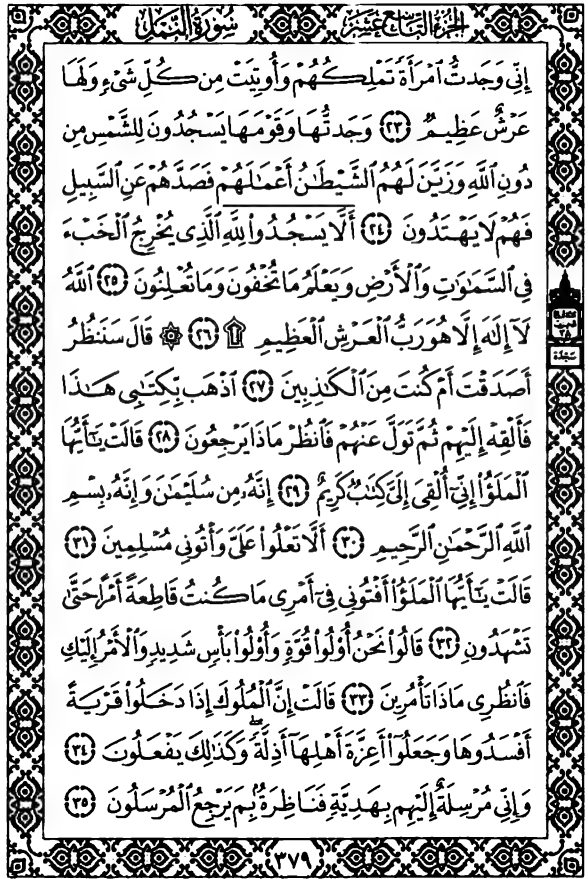 الجزء التاسع عشر
سورة النمل
إِنِّى وَجَدتُّ ٱمْرَأَةً تَمْلِكُهُمْ وَأُوتِيَتْ مِن كُلِّ شَىْءٍ وَلَهَا
عَرْشٌ عَظِيمٌ ﴿٢٣﴾ وَجَدتُّهَا وَقَوْمَهَا يَسْجُدُونَ لِلشَّمْسِ مِن
دُونِ ٱللَّهِ وَزَيَّنَ لَهُمُ ٱلشَّيْطَٰنُ أَعْمَٰلَهُمْ فَصَدَّهُمْ عَنِ ٱلسَّبِيلِ
فَهُمْ لَا يَهْتَدُونَ ﴿٢٤﴾ أَلَّا يَسْجُدُوا۟ لِلَّهِ ٱلَّذِى يُخْرِجُ ٱلْخَبْءَ
فِى ٱلسَّمَٰوَٰتِ وَٱلْأَرْضِ وَيَعْلَمُ مَا تُخْفُونَ وَمَا تُعْلِنُونَ ﴿٢٥﴾ ٱللَّهُ
لَآ إِلَٰهَ إِلَّا هُوَ رَبُّ ٱلْعَرْشِ ٱلْعَظِيمِ ۩ ﴿٢٦﴾ ۞ قَالَ سَنَنظُرُ
أَصَدَقْتَ أَمْ كُنتَ مِنَ ٱلْكَٰذِبِينَ ﴿٢٧﴾ ٱذْهَب بِّكِتَٰبِى هَٰذَا
فَأَلْقِهْ إِلَيْهِمْ ثُمَّ تَوَلَّ عَنْهُمْ فَٱنظُرْ مَاذَا يَرْجِعُونَ ﴿٢٨﴾ قَالَتْ يَٰٓأَيُّهَا
ٱلْمَلَؤُا۟ إِنِّىٓ أُلْقِىَ إِلَىَّ كِتَٰبٌ كَرِيمٌ ﴿٢٩﴾ إِنَّهُۥ مِن سُلَيْمَٰنَ وَإِنَّهُۥ بِسْمِ
ٱللَّهِ ٱلرَّحْمَٰنِ ٱلرَّحِيمِ ﴿٣٠﴾ أَلَّا تَعْلُوا۟ عَلَىَّ وَأْتُونِى مُسْلِمِينَ ﴿٣١﴾
قَالَتْ يَٰٓأَيُّهَا ٱلْمَلَؤُا۟ أَفْتُونِى فِىٓ أَمْرِى مَا كُنتُ قَاطِعَةً أَمْرًا حَتَّىٰ
تَشْهَدُونِ ﴿٣٢﴾ قَالُوا۟ نَحْنُ أُو۟لُوا۟ قُوَّةٍ وَأُو۟لُوا۟ بَأْسٍ شَدِيدٍ وَٱلْأَمْرُ إِلَيْكِ
فَٱنظُرِى مَاذَا تَأْمُرِينَ ﴿٣٣﴾ قَالَتْ إِنَّ ٱلْمُلُوكَ إِذَا دَخَلُوا۟ قَرْيَةً
أَفْسَدُوهَا وَجَعَلُوٓا۟ أَعِزَّةَ أَهْلِهَآ أَذِلَّةً ۖ وَكَذَٰلِكَ يَفْعَلُونَ ﴿٣٤﴾
وَإِنِّى مُرْسِلَةٌ إِلَيْهِم بِهَدِيَّةٍ فَنَاظِرَةٌۢ بِمَ يَرْجِعُ ٱلْمُرْسَلُونَ ﴿٣٥﴾
سجدة
٣٧٩